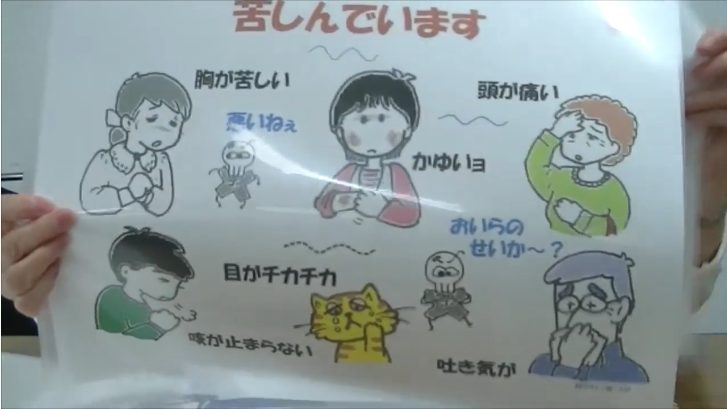 苦しんでいます
胸が苦しい
頭が痛い
悪いねぇ
かゆいョ
おいらの
せいか〜？
目がチカチカ
咳が止まらない
吐き気が